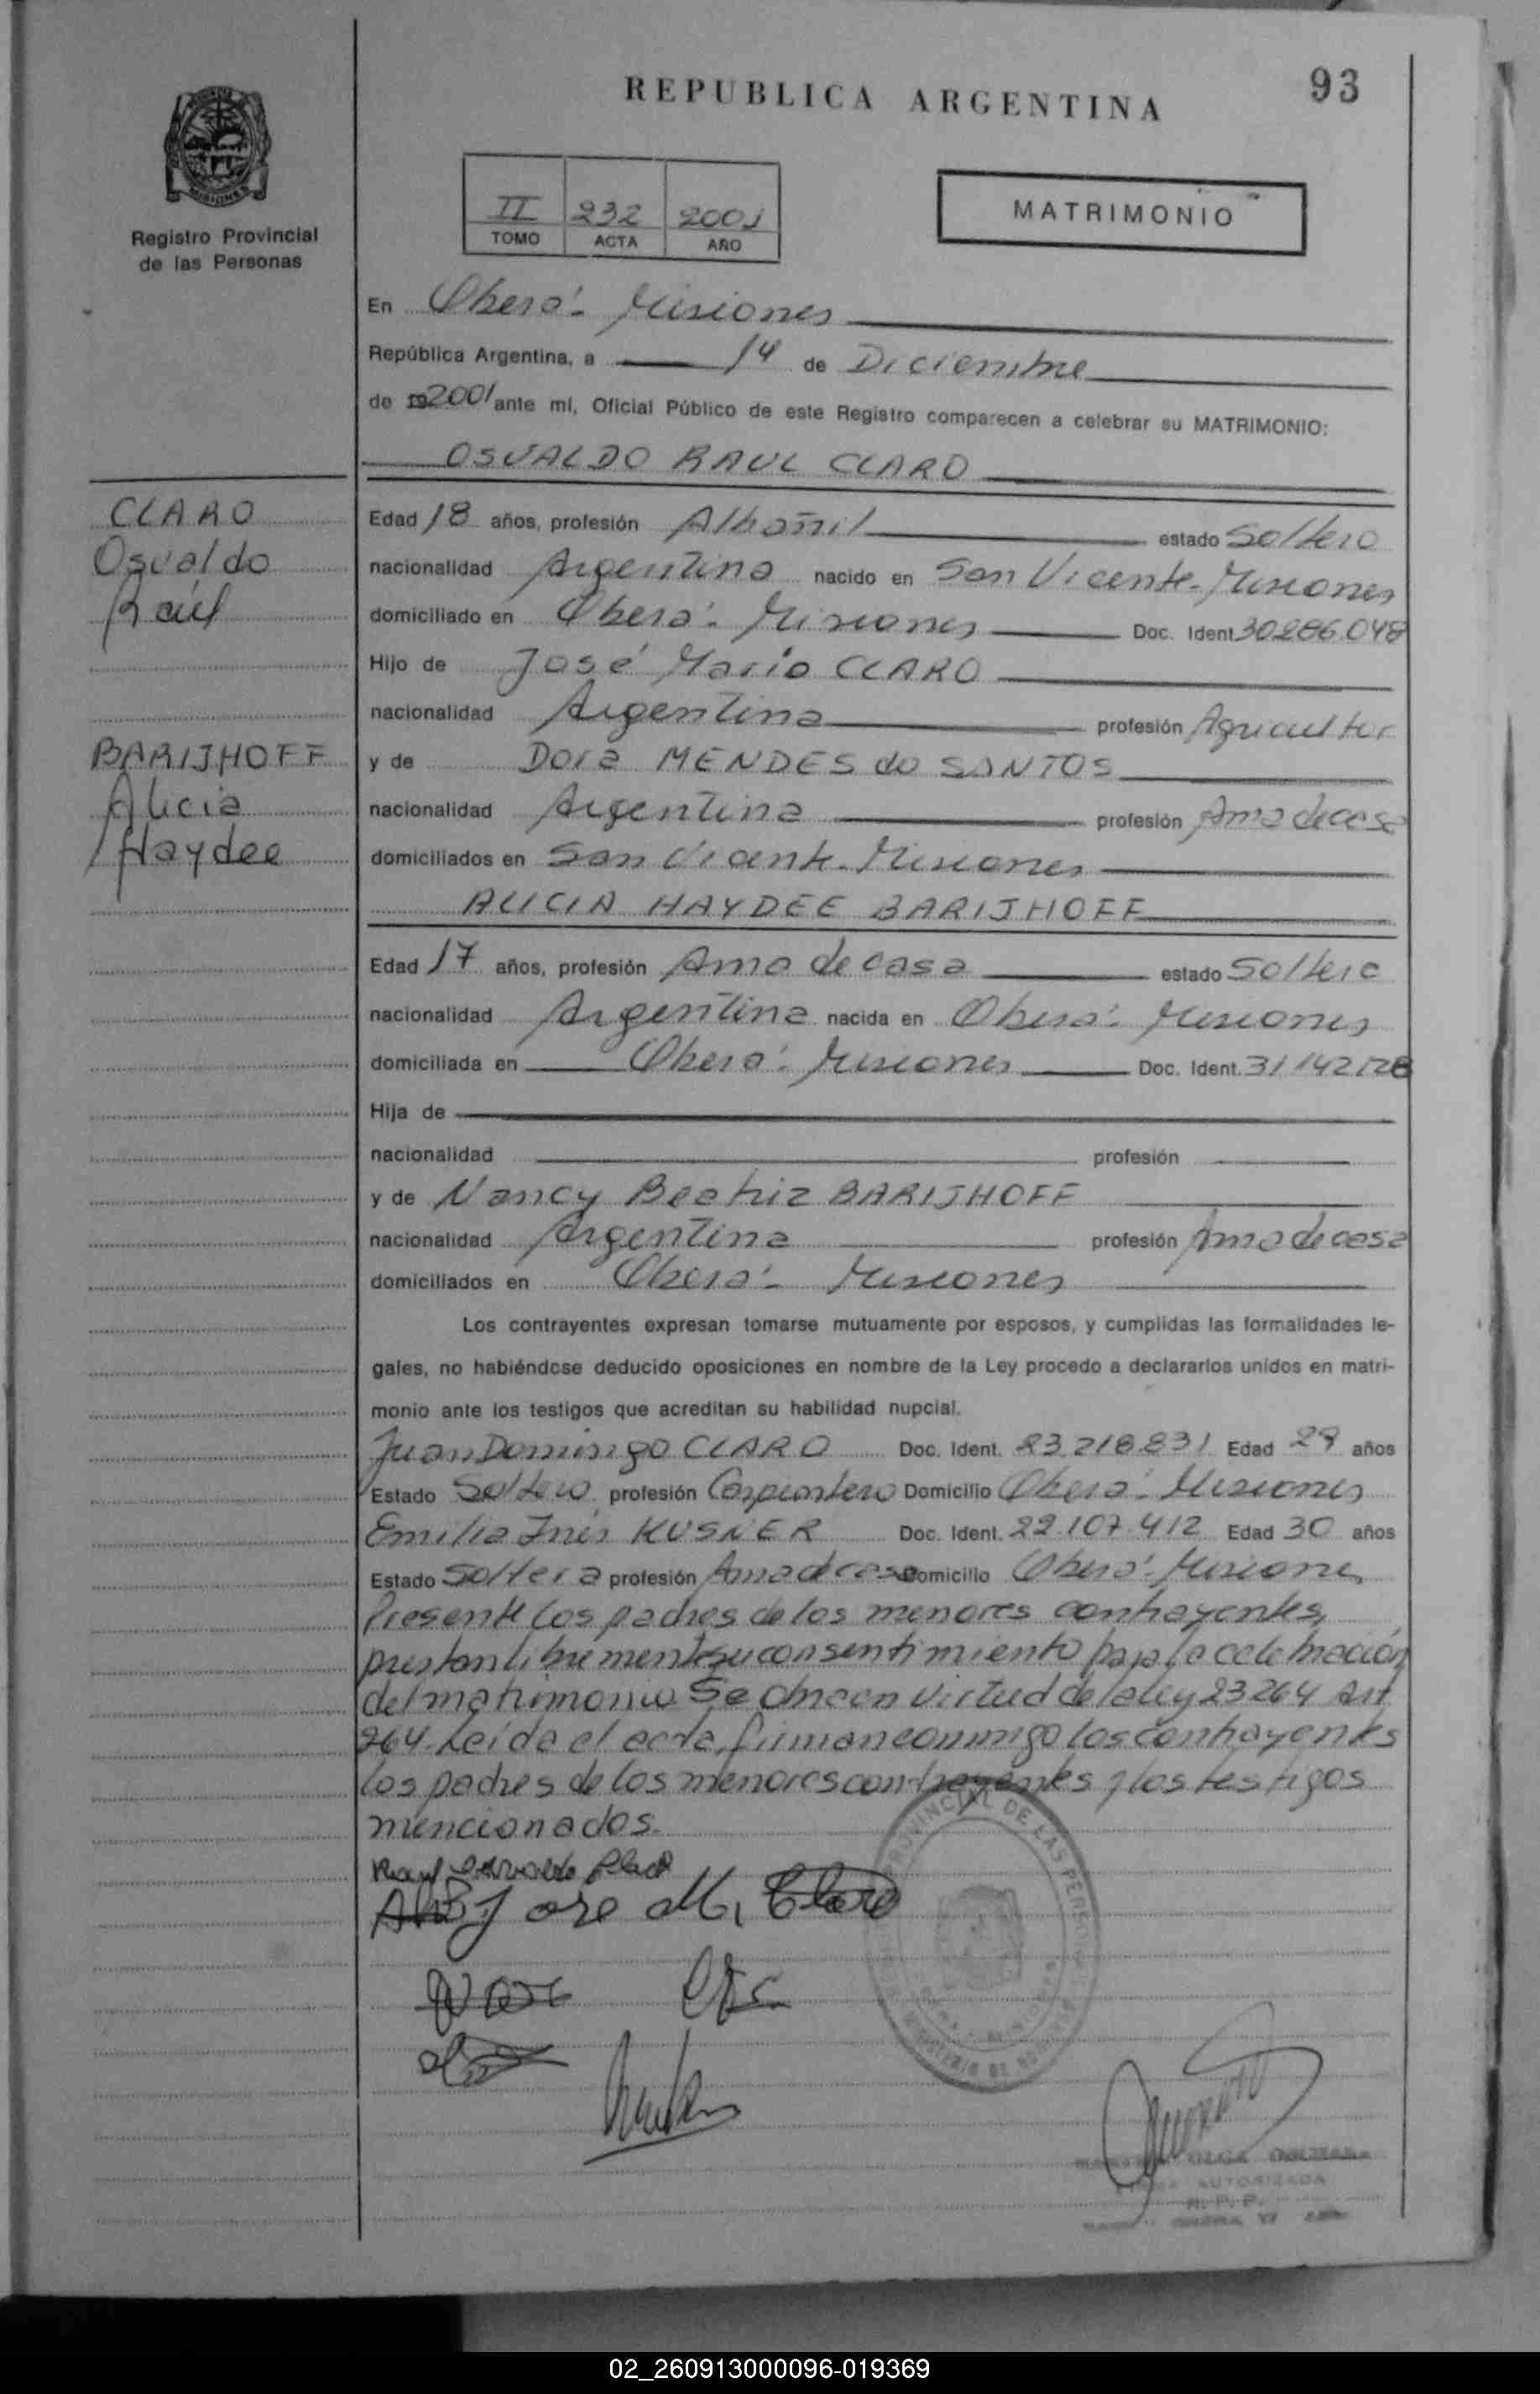 REPUBLICA ARGENTINA
93
MISIONES
Registro Provincial
de las Personas
II 232 2001
TOMO ACTA AÑO
MATRIMONIO
En Oberá - Misiones
República Argentina, a 14 de Diciembre
de 19 2001 ante mí, Oficial Público de este Registro comparecen a celebrar su MATRIMONIO:
OSVALDO RAUL CLARO
CLARO
Osvaldo
Raúl
Edad 18 años, profesión Albañil estado Soltero
nacionalidad Argentina nacido en San Vicente - Misiones
domiciliado en Oberá - Misiones Doc. Ident. 30286.048
Hijo de José Mario CLARO
nacionalidad Argentina profesión Agricultor
BARIJHOFF
Alicia
Haydee
y de Dora MENDES do SANTOS
nacionalidad Argentina profesión Ama de casa
domiciliados en San Vicente - Misiones
ALICIA HAYDEE BARIJHOFF
Edad 17 años, profesión Ama de casa estado Soltera
nacionalidad Argentina nacida en Oberá - Misiones
domiciliada en Oberá - Misiones Doc. Ident. 31142128
Hija de
nacionalidad profesión
y de Nancy Beatriz BARIJHOFF
nacionalidad Argentina profesión Ama de casa
domiciliados en Oberá - Misiones
Los contrayentes expresan tomarse mutuamente por esposos, y cumplidas las formalidades le-
gales, no habiéndose deducido oposiciones en nombre de la Ley procedo a declararlos unidos en matri-
monio ante los testigos que acreditan su habilidad nupcial.
Juan Domingo CLARO Doc. Ident. 23.218.831 Edad 29 años
Estado Soltero profesión Carpintero Domicilio Oberá - Misiones
Emilia Inés KUSNER Doc. Ident. 22.107.412 Edad 30 años
Estado Soltera profesión Ama de casa Domicilio Oberá - Misiones
Presente los padres de los menores contrayentes,
prestan libremente su consentimiento para la celebración
del matrimonio. Se obra en virtud de la ley 23264 Art
264. Leída el acta, firman conmigo los contrayentes
los padres de los menores contrayentes y los testigos
mencionados.
Jose M. Claro
PROVINCIAL DE LAS PERSONAS
OLGA
AUTORIZADA
R. P. P.
02_260913000096-019369